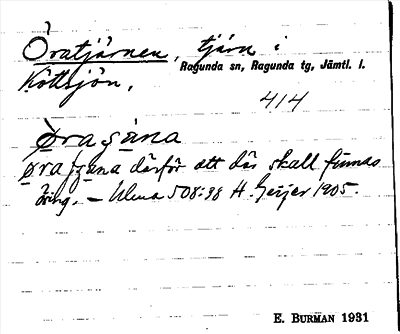 Öratjärnen, tjärn i
Ragunda sn, Ragunda tg, Jämtl. l.
Köttsjön,
414
därför att där skall finnas
öring. – Ulma 508:38 H. Geijer 1905.
E. BURMAN 1931